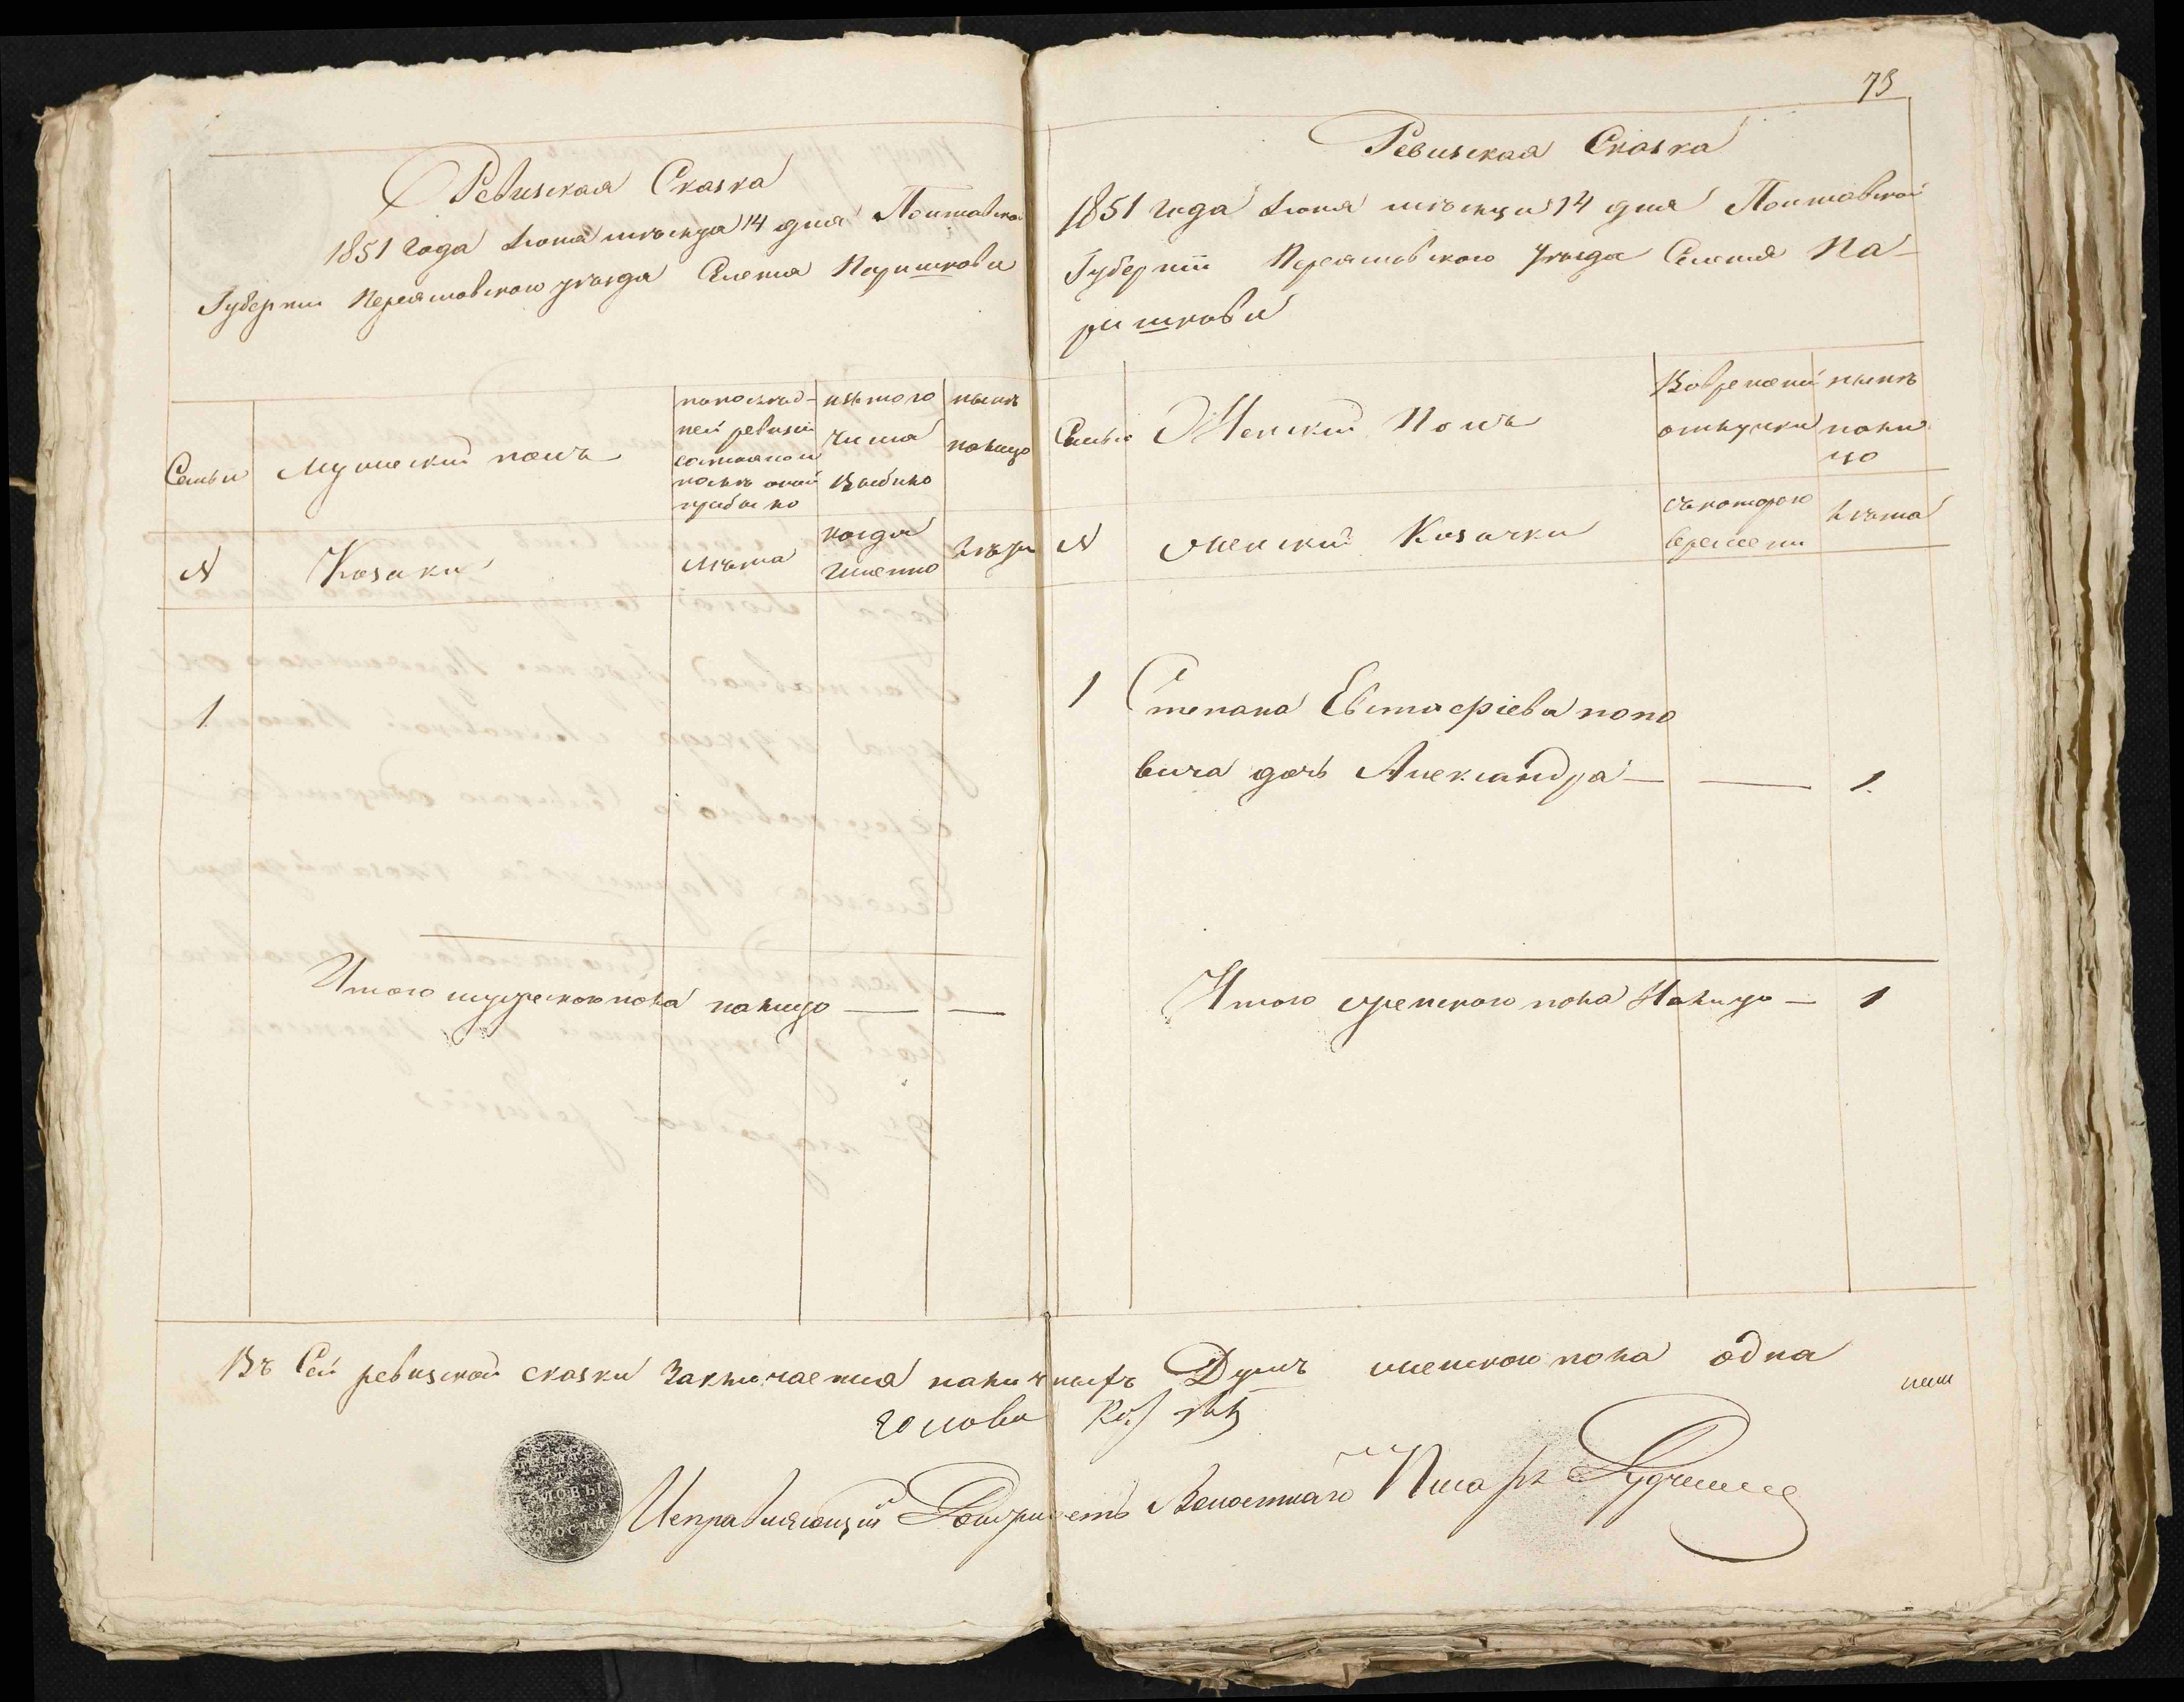 Ревизская Сказка
1851 года Июня мѣсяца 14 дня Полтавской
Губернии Переяловского уѣзда Селения Паришкова
Семьи
Мужеский полъ
по последней ревизии состояло и послѣ оной прибыло
изъ того числа выбыло
нынѣ на лицо
N
Козаки
Лѣта
когда именно
Лѣта
1
Итого мужеского пола на лицо — —
73
Ревизская Сказка
1851 года Июня мѣсяца 14 дня Полтавской
Губернии Переяловского Уѣзда Селения Па-
ришкова
Семьи
Женский Полъ
Во временной отлучки
нынѣ на лицо
N
женский Козачки
съ которого времени
Лѣта
1
Степана Евстафiева попо
вича дочь Александра — — 1.
Итого женского пола На лицо — 1
Въ Сей ревизской сказки Заключается наличныхъ Душъ женского пола одна
голова
Исправляющий Должность Волостнаго Писаря